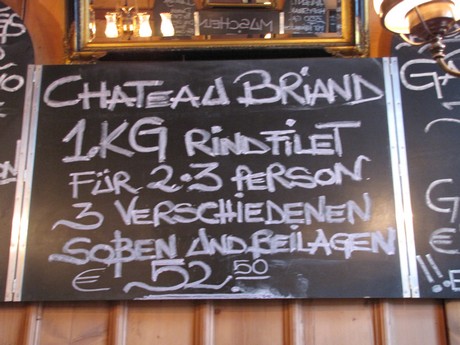 MUSCHEN
CHATEAU BRIAND
1.KG RINDFILET
FÜR 2-3 PERSON.
3 VERSCHIEDENEN
SOßEN UND BEILAGEN
€ 52.50